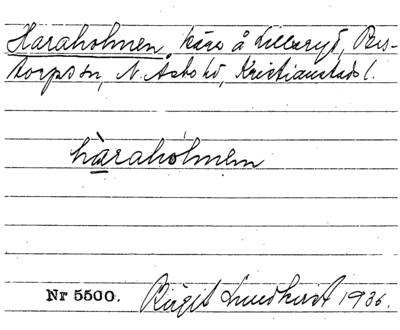 Haraholmen, kärr å Lillaryd, Per-
torps sn, N. Åsbo hd, Kristianstads l.
hàrahólmen
Nr 5500. Birgit Lundqvist 1936.